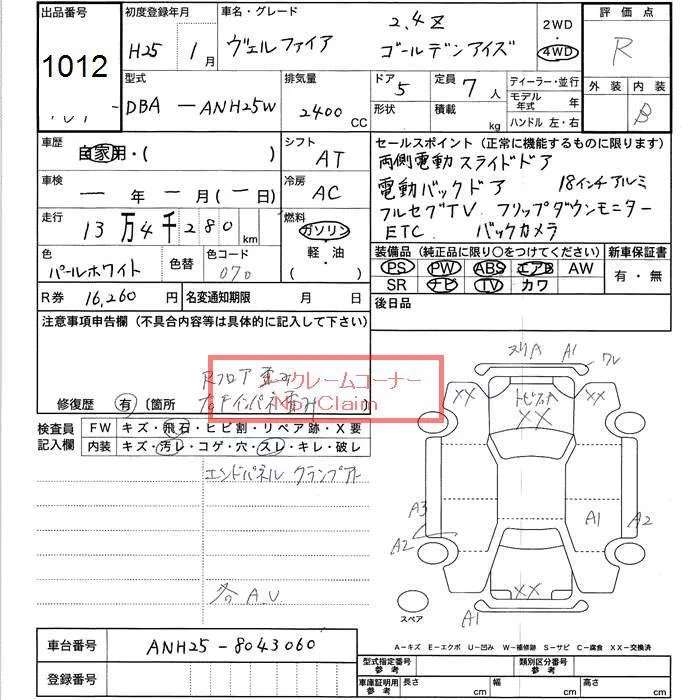 出品番号 初度登録年月 車名・グレード 2WD 評価点
1012 H25 年 1月 ヴェルファイア 2.4Z ゴールデンアイズ 4WD R
型式 排気量 ドア 5 定員 7人 ディーラー・並行 外装 内装
DBA-ANH25W 2400CC 形状 積載 kg モデル年式 年 B
ハンドル 左・右
車歴 自家用・( ) シフト AT
セールスポイント(正常に機能するものに限ります)
両側電動スライドドア
車検 ー年ー月(ー日) 冷房 AC
電動バックドア 18インチアルミ
フルセグTV フリップダウンモニター
走行 13万4千280km 燃料 ガソリン
ETC バックカメラ
軽・油
( )
色 パールホワイト 色替 色コード 070
装備品(純正品に限り○をつけてください) 新車保証書
PS PW ABS エアB AW 有・無
SR ナビ TV カワ
R券 16,260円 名変通知期限 月 日
後日品
注意事項申告欄(不具合内容等は具体的に記入して下さい)
Rフロア
クレームコーナー
No Claim
修復歴 有 〔箇所
検査員記入欄
FW キズ・飛石・ヒビ割・リペア跡・X要
内装 キズ・汚レ・コゲ・穴・スレ・キレ・破レ
エンドパネル クランプアト
各A.U.
A1 ワレ
XX XX
XX
A3 A1 A2
A2
XX
スペア A1
A-キズ E-エクボ U-凹み W-補修跡 S-サビ C-腐食 XX-交換済
車台番号 ANH25-8043060
登録番号
型式指定番号 参考 類別区分番号 参考
車庫証明用 参考 長さ cm 幅 cm 高さ cm